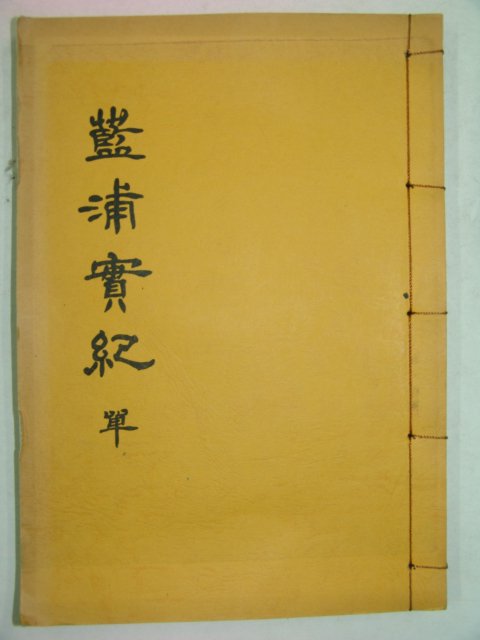 藍浦實紀 單